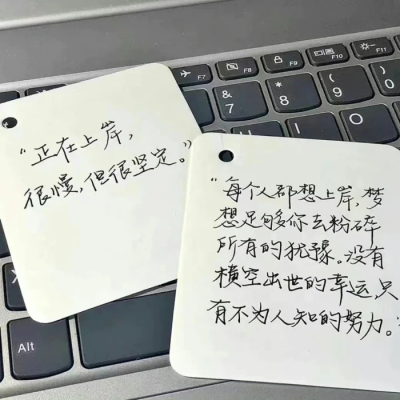 “正在上岸，
很慢，但很坚定。”
“每个人都想上岸，梦
想足够你去粉碎
所有的犹豫。没有
横空出世的幸运，只
有不为人知的努力。”
F7
F8
F9
F10
F11
7
8
9
0
Alt